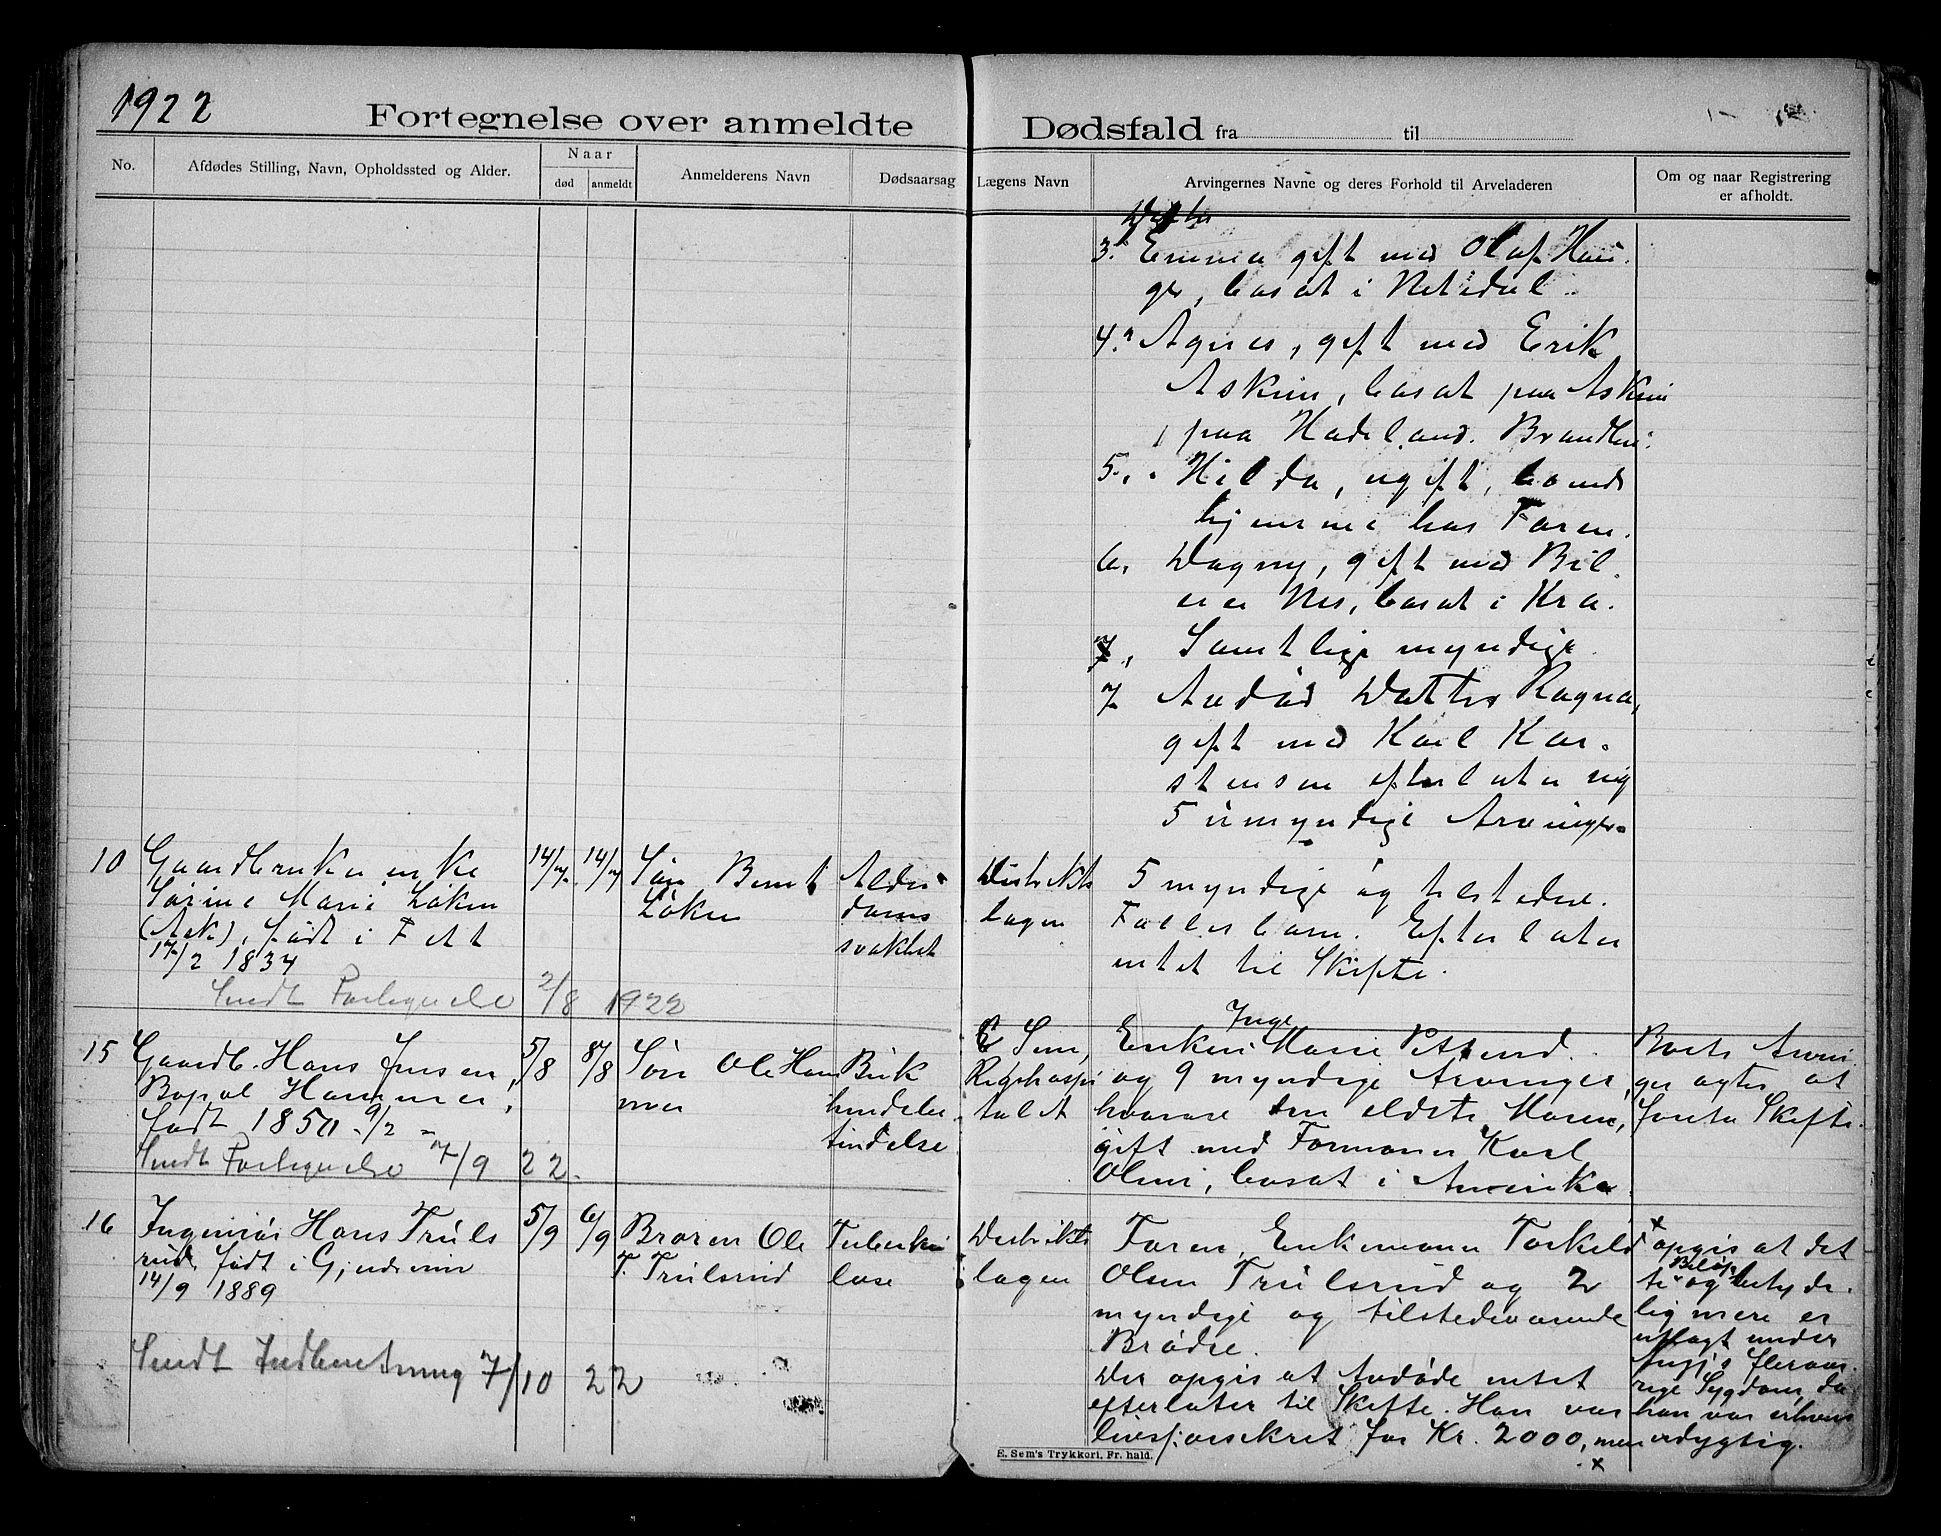 1922
Fortegnelse over anmeldte Dødsfald fra til
No.
Afdødes Stilling, Navn, Opholdssted og Alder.
Naar
død
anmeldt
Anmelderens Navn
Dødsaarsag
Lægens Navn
Arvingernes Navne og deres Forhold til Arveladeren
Om og naar Registrering
er afholdt.
3. Emma gift med Olaf Hau-
ger, bosat i Nitedal.
4. Agnes, gift med Erik
Askim, bosat paa Askim
paa Hadeland. Brandbu.
5. Hilda, ugift, boende
hjemme hos Faren.
6. Dagny, gift med
Nes, bosat i Kra.
7. Samtlige myndige
7 Avdød Datter Ragna,
gift med Karl Kar-
stensen efterlater sig
5 umyndige Arvinger.
10 Gaardbrukerenke 14/7 14/7 Søn Bernt Alder- Distrikts 5 myndige og tilstedev.
Sørine Marie Løken Løken doms lægen Fællesbarn. Efterlater
(Ask), født i Fett svakhet intet til Skifte.
17/2 1834
Sendt Fortegnelse 2/8 1922
15 Gaardb. Hans Jensen 5/8 8/8 Søn Ole Ham Buk E Sem, Enken Inge Marie Pettersd. Bods Arvin
Bøpal Hammer, mer hindebe- Rigshospi og 9 myndige Arvinger, ger agter at
født 1850 9/2 - tindelse talet hvorav den eldste Maren, foreta Skifte.
Sendt Fortegnelse 7/9 22. gift med Formann Karl
Olsen, bosat i Amerika.
16 Ingeniør Hans Truls 5/9 6/9 Broren Ole Tuberku Distrikts Faren, Enkemann Torkild x opgis at det
rud, født i Gjerdrum T. Trulsrud lose lægen Olsen Trulsrud og 2 te Beløp og betyde-
14/9 1889 myndige og tilstedeværende lig mere er
Brødre. utlagt under
Sendt Indberetning 7/10 22 Der opgis at Avdøde intet Ing's fleraar-
efterlater til Skifte. Han var rige Sygdom, da
livsforsikret for Kr. 2000, men han var erhvervs
x udygtig.
E. Sem's Trykkeri, Fr.hald.